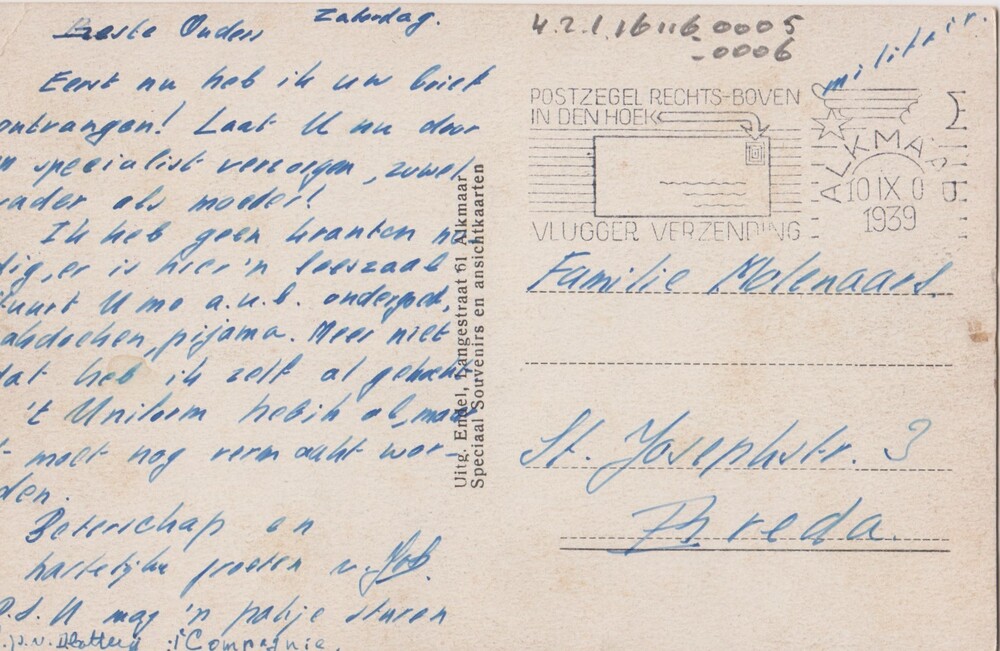 Zaterdag.
Beste Ouders
Eerst nu heb ik uw brief
ontvangen! Laat U nu door
'n specialist verzorgen, zowel
vader als moeder!
Ik heb geen kranten no
dig, er is hier 'n leeszaal
stuurt U me a.u.b. ondergoed,
zakdoeken, pijama. Meer niet
dat heb ik zelf al gehaald
't Uniform heb ik al, maar
't moet nog vermaakt wor-
den.
Beterschap en
hartelijke groeten v. Job.
P.S. U mag 'n pakje sturen
Compagnie
Uitg. Enkel, Langestraat 61 Alkmaar
Speciaal Souvenirs en ansichtkaarten
4.2.1.16116.0005
-0006
militair.
POSTZEGEL RECHTS-BOVEN
IN DEN HOEK
VLUGGER VERZENDING
ALKMAAR
10 IX 0
1939
Familie Molenaars.
St. Josephstr. 3
Breda.